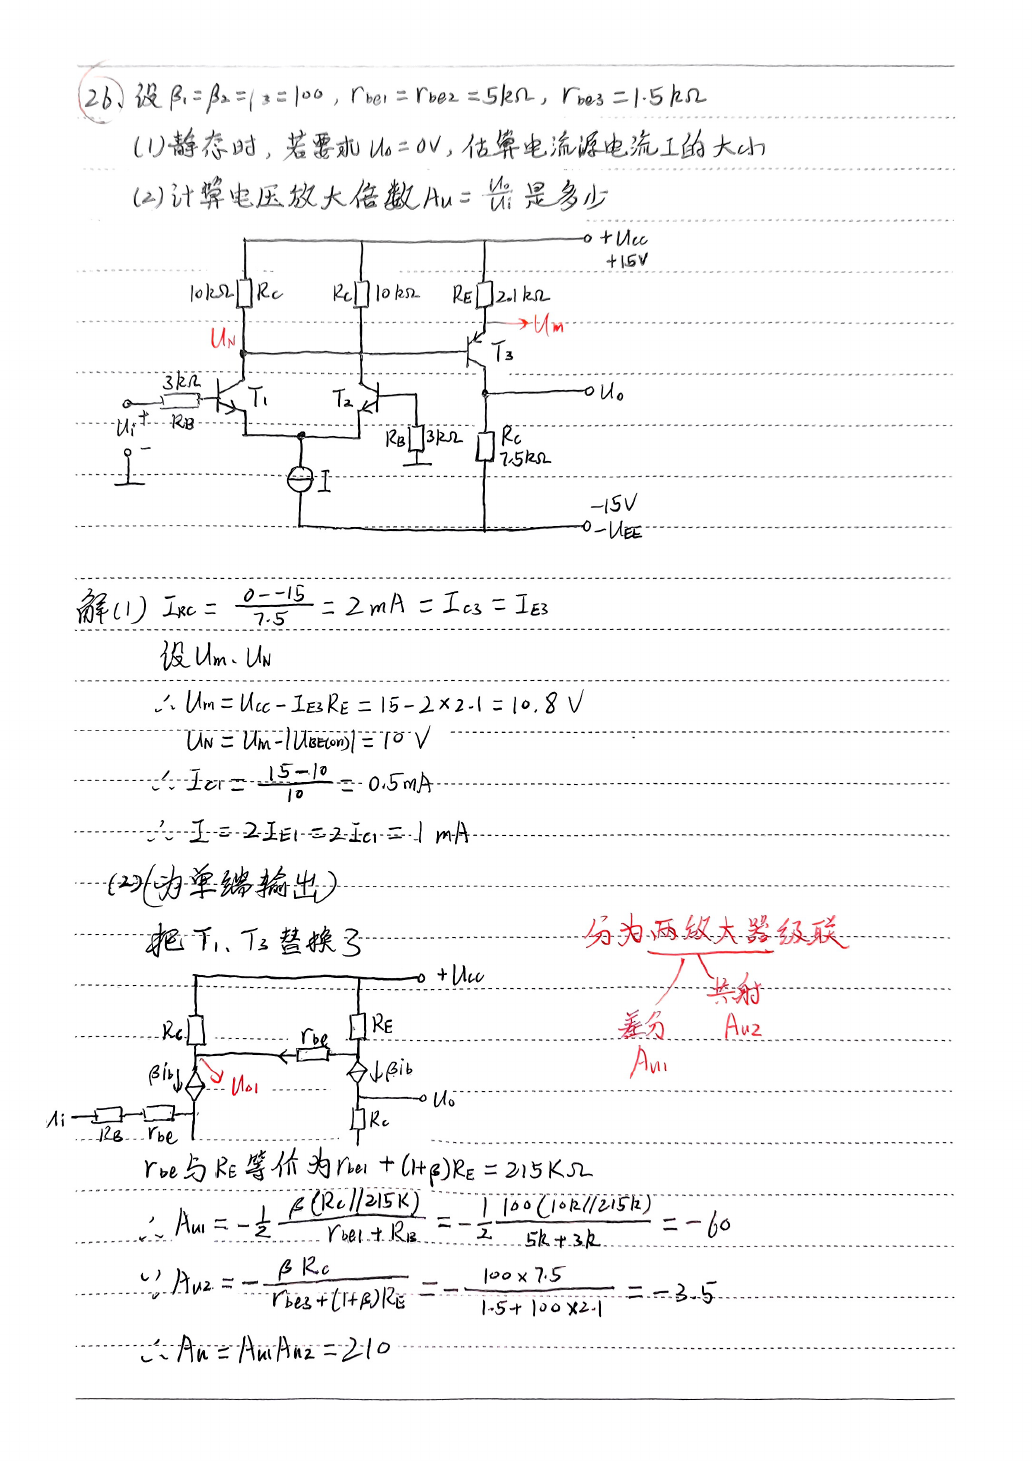 26、设 β₁=β₂=β₃=100, rbe1=rbe2=5kΩ, rbe3=1.5kΩ
(1)静态时, 若要求 Uo=0V, 估算电流源电流I的大小
(2)计算电压放大倍数Au=Uo/Ui是多少
+Ucc
+15V
10kΩ Rc
Rc 10kΩ
RE 2.1kΩ
UN
Um
T₃
3kΩ
T₁
T₂
Uo
Ui
+
-
RB
RB 3kΩ
Rc
7.5kΩ
I
-15V
-UEE
解(1) IRC = (0--15)/7.5 = 2mA = IC3 = IE3
设Um、UN
∴ Um = Ucc - IE3RE = 15-2×2.1 = 10.8 V
UN = Um-|UBE(on)| = 10 V
∴ IC1 = (15-10)/10 = 0.5mA
∴ I = 2IE1 = 2IC1 = 1 mA
(2)(为单端输出)
把 T₁、T₃ 替换了
分为两放大器级联
共射
Au2
差分
Au1
+Ucc
Rc
rbe
RE
βib
Uo1
βib
Uo
Rc
Ui
RB
rbe
rbe与RE等价为rbe1+(1+β)RE=215KΩ
∴ Au1 = -1/2 β(Rc//215K)/(rbe1+RB) = -1/2 100(10k//215k)/(5k+3k) = -60
∵ Au2 = - βRc/(rbe3+(1+β)RE) = - (100×7.5)/(1.5+100×2.1) = -3.5
∴ Au = Au1Au2 = 210